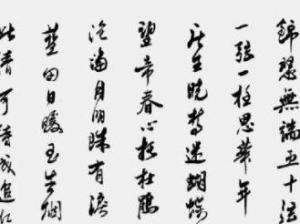 錦瑟無端五十弦
一弦一柱思華年
庄生曉夢迷蝴蝶
望帝春心托杜鵑
滄海月明珠有淚
藍田日暖玉生烟
此情可待成追忆